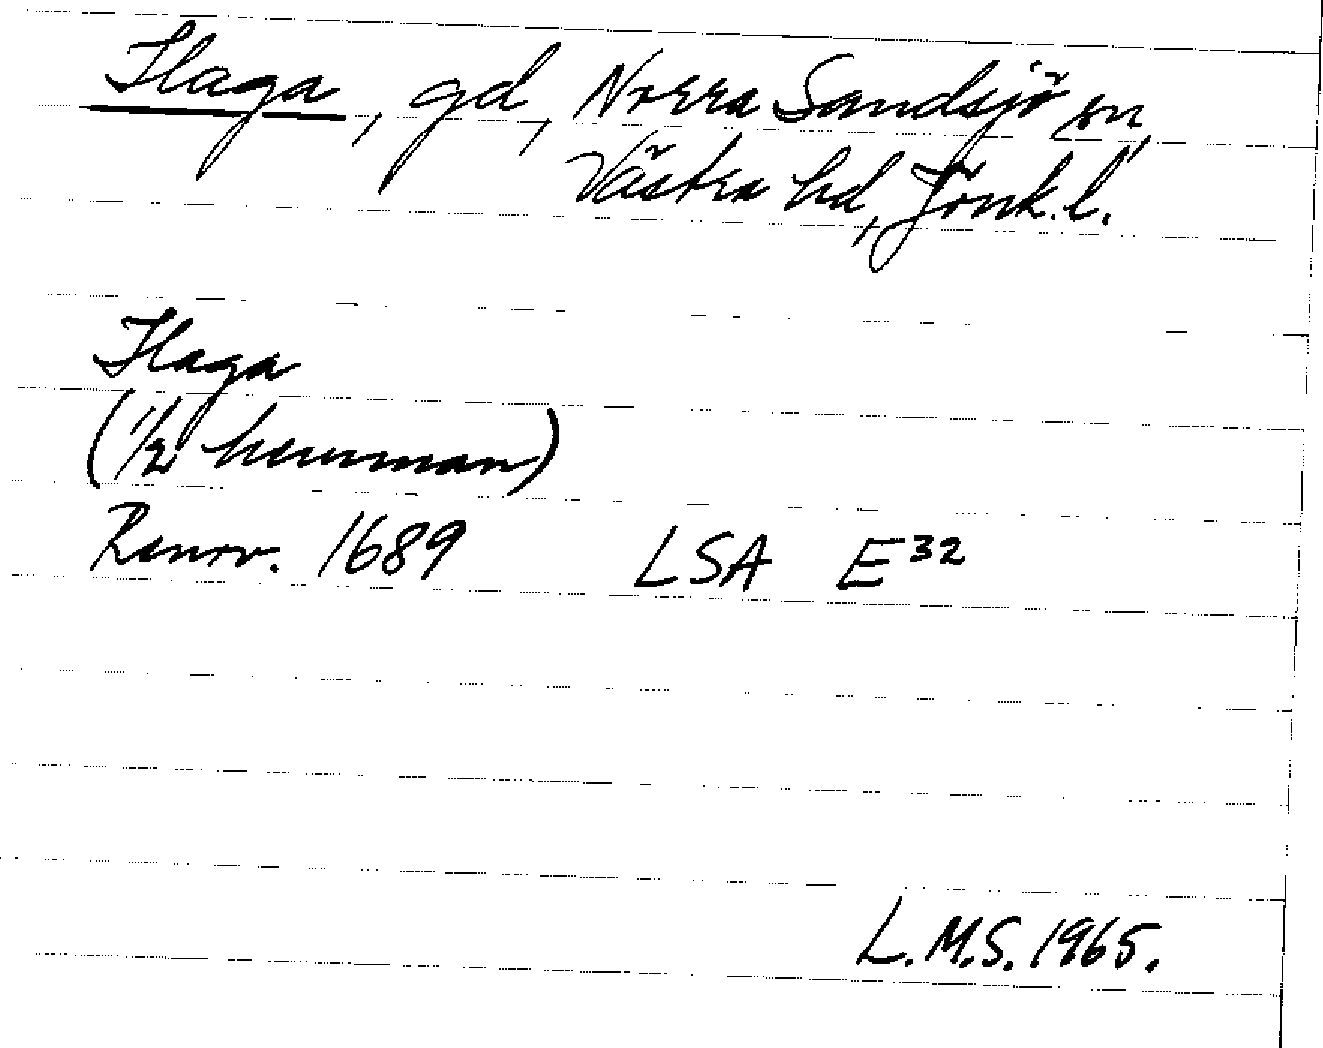 Flaga, gd, Norra Sandsjö sn,
Västra hd, Jönk. l.
Flaga
(1/2 hemman)
Renov. 1689 LSA E³²
L.M.S. 1965.